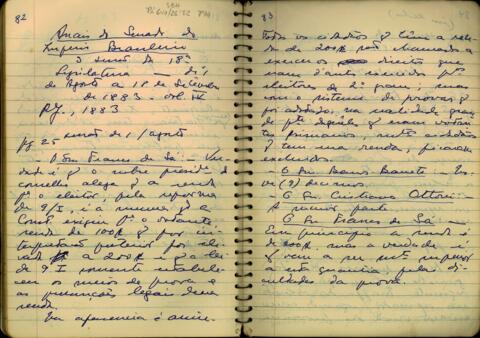 82
Anais do Senado do
Império Brasileiro
3 sessão da 18ª
Legislatura — de 1
de Agosto a 18 de Setembro
de 1883 - vol. IV
RJ., 1883
pg 25 sessão de 1/agosto
— O Snr Franco de Sá: — Ver-
dade é q o nobre presid. do
conselho alega q a renda
pª o eleitor, pela reforma
de 9/I, é a mesma q a
Const. exigia pª o votante
renda de 100$ q por in-
terpretação posterior foi ele-
vada a 200$ e q a lei
de 9 I somente estabele-
ceu os meios de prova e
as presunções legais dessa
renda.
Na aparencia é assim.
83
Todos os cidadãos q têm a ren-
da de 200$ são chamados a
exercer o direito que
eram d'antes exercido pelos
eleitores de 2º grau, mas
com o sistema de provas q
foi adotado, na realidade, grande
pte daqueles q eram votan-
tes primarios, muitos cidadãos
q tem essa renda, ficaram
excluidos.
— O Snr Barros Barreto —
(9) decimos
— O Snr Cristiano Ottoni —
A maior parte
— O Snr Franco de Sá —
Em principio a renda é
de 200$ mas a verdade é
q vem a ser muito superior
a esta quantia pelas di-
ficuldades da prova.